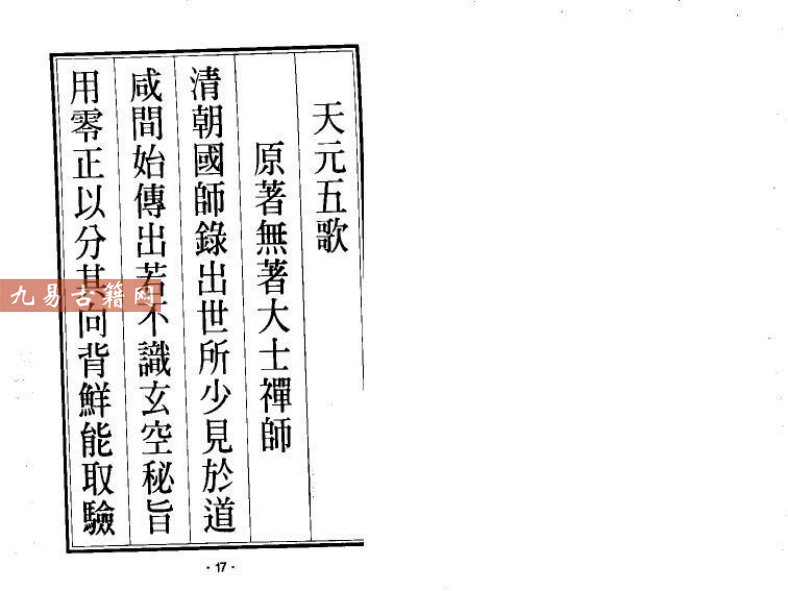 天元五歌
原著無著大士禪師
清朝國師錄出世所少見於道
咸間始傳出若不識玄空秘旨
用零正以分其向背鮮能取驗
九易古籍网
· 17 ·